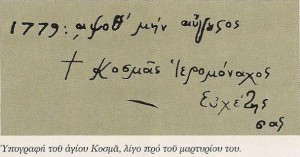 1779: αψοθ' μήν αὔγουςος
† Κοσμᾶς Ἱερομόναχος
Εὐχέτης
σας
Ὑπογραφή τοῦ ἁγίου Κοσμᾶ, λίγο πρό τοῦ μαρτυρίου του.